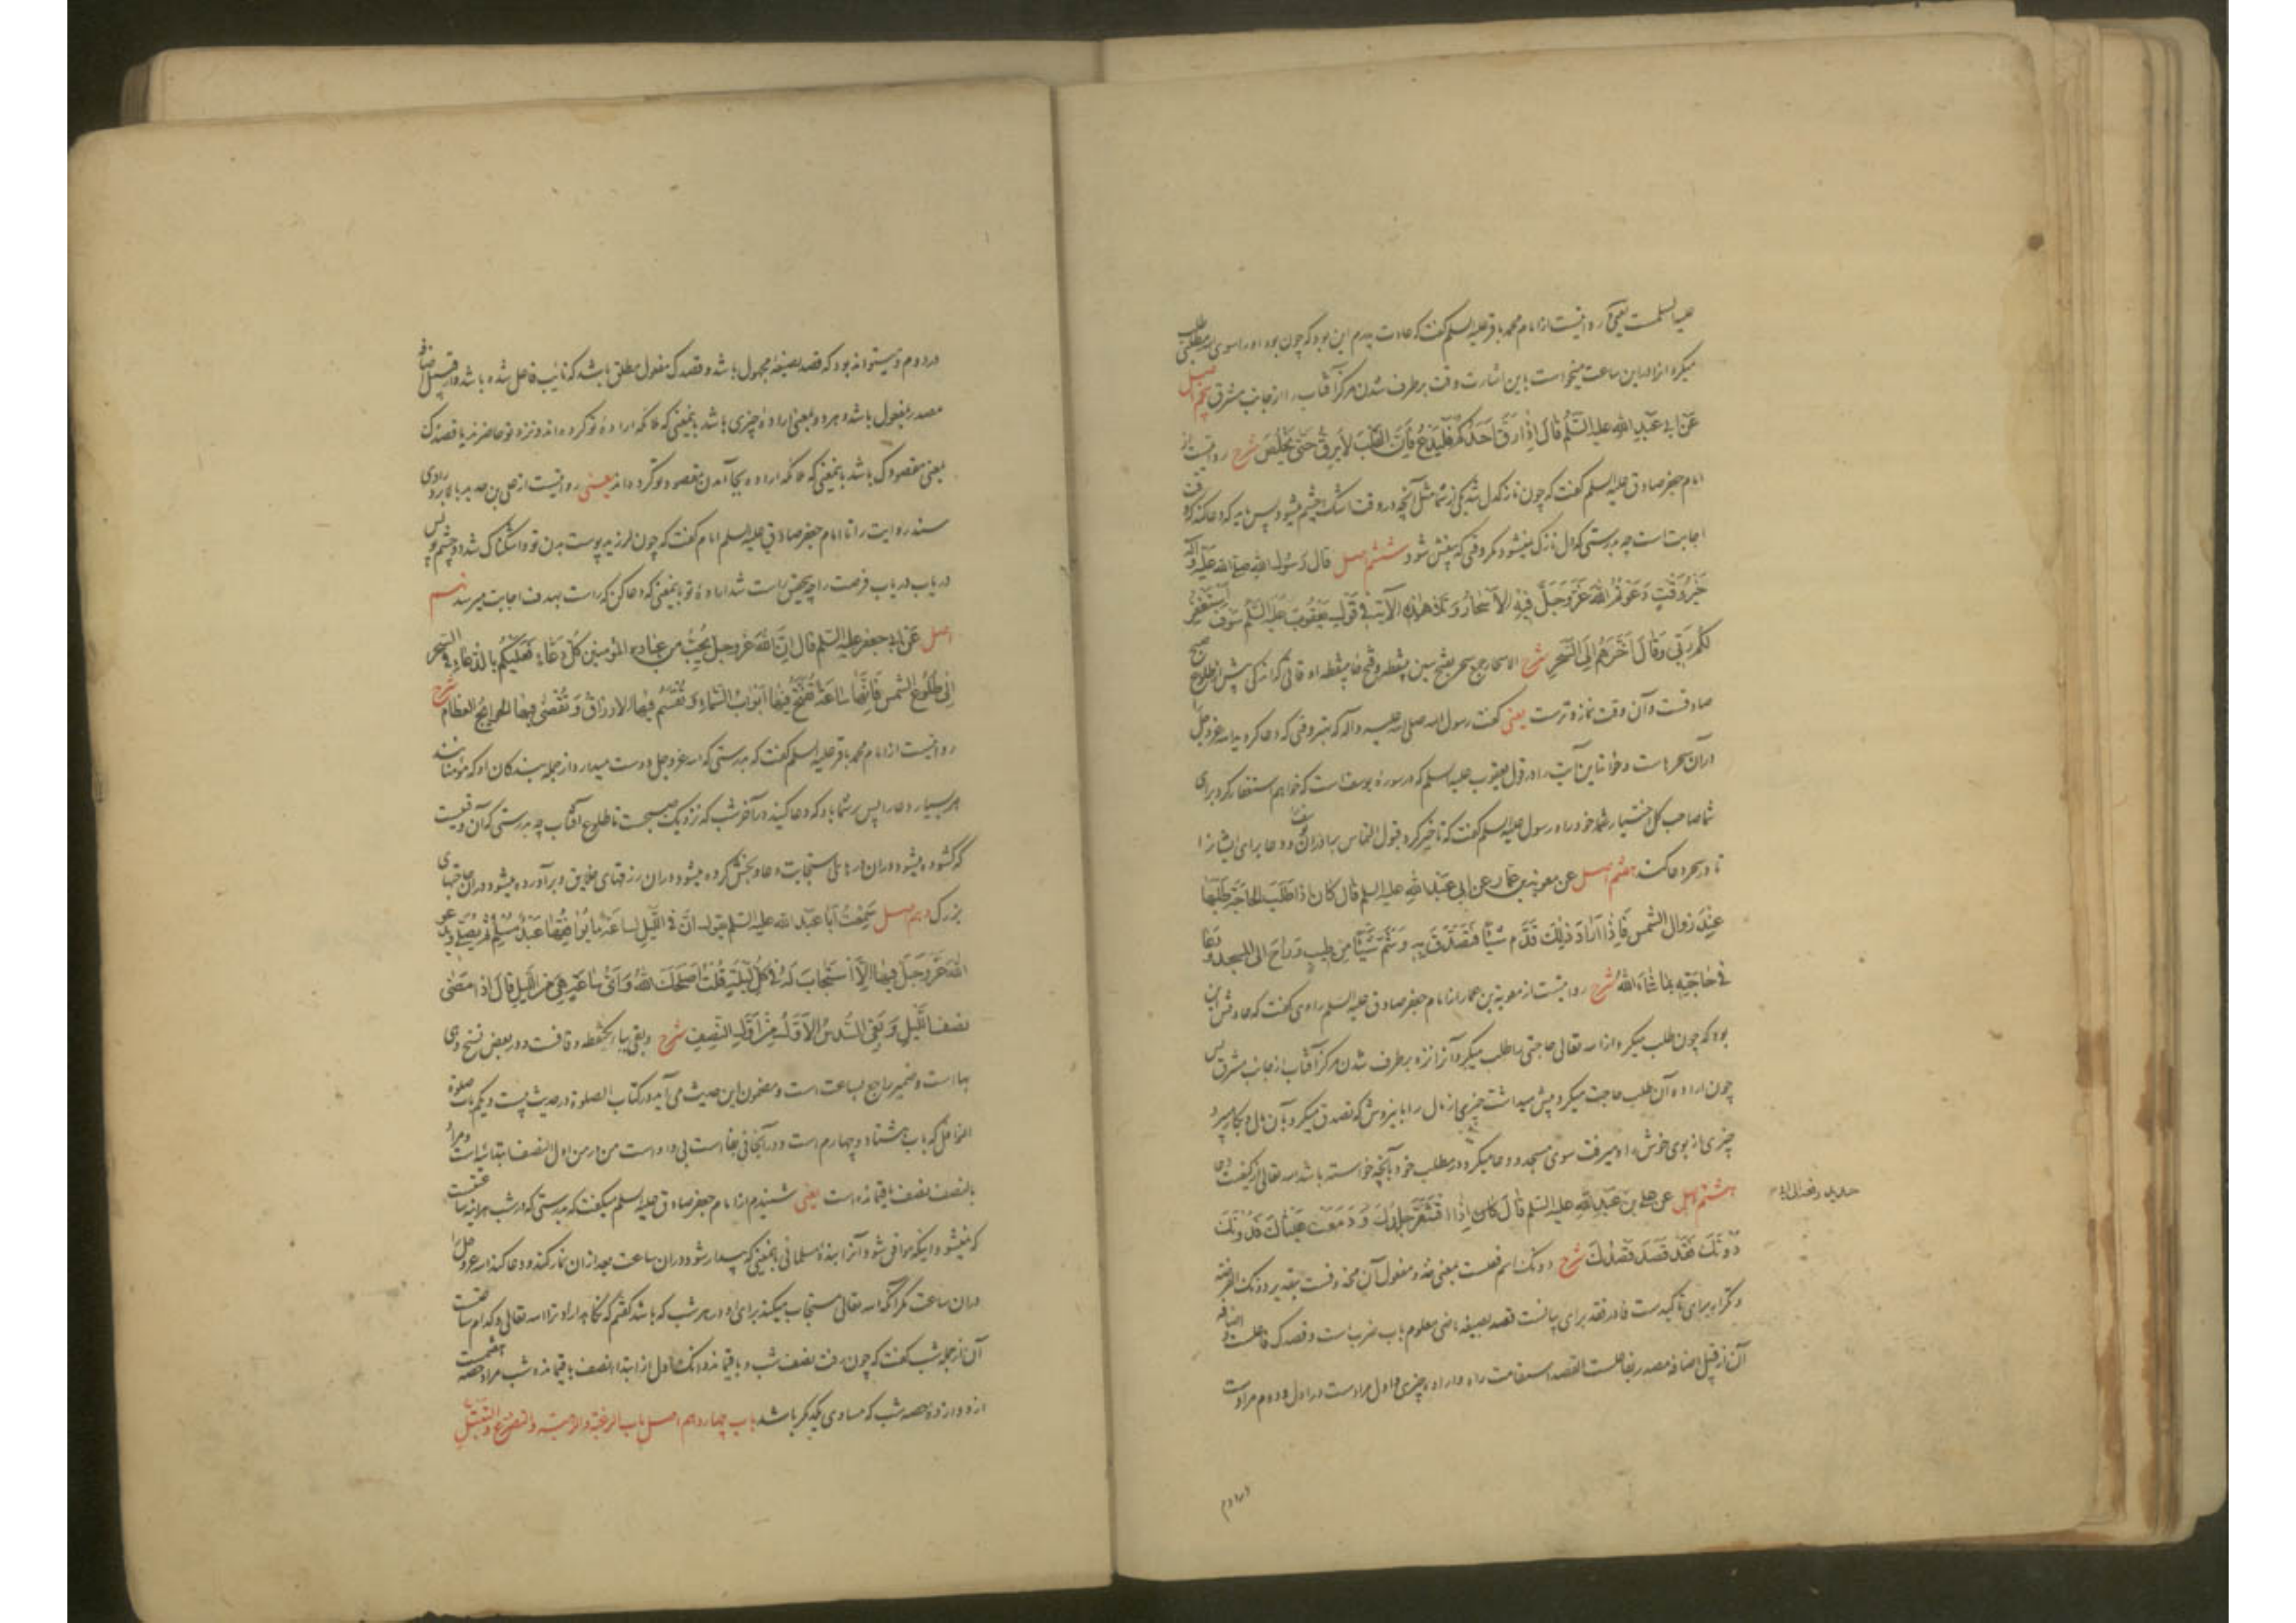 علیه السلمست یعنی روایتست از امام محمد باقر علیه السلم گفت که عادت پدرم این بود که چون بود او را سوی الله مطلبی طلب
میکرد آنرا در این ساعت میخواست باین اشارت وقت برطرف شدن مرکز آفتاب را از جانب مشرق پنجم اصل
عَن ابی عَبدِ اللهِ علیه السَّلم قالَ اِذا رَقَّ اَحَدُکُم فَلیَدعُ فَاِنَّ القَلبَ لایَرِقُّ حَتّی یَخلُصَ شرح روایتست از
امام جعفر صادق علیه السلم گفت که چون نازکدل شد یکی از شما مثل آنچه در وقت اشک چشم میشود پس باید که دعا کند که وقت
اجابت است چه بدرستی که دل نازک نمیشود مگر وقتی که بیغش شود ششم اصل قالَ رَسُولُ اللهِ صلی الله علیه وآله
خَیرُ وَقتٍ دَعَوتُمُ اللهَ عَزَّ وَجَلَّ فیهِ الاَسحارُ وَ تَلا هذِهِ الآیَة فی قَولِ یَعقُوبَ علیه السَّلم سَوفَ اَستَغفِرُ
لَکُم رَبّی وَقالَ اَخَّرَهُم اِلَی السَّحَرِ شرح الاسحار جمع سحر بفتح سین بینقطه وفتح حا بینقطه اوقاتی که اندکی پیش از طلوع صبح
صادقست و آن وقت نماز وترست یعنی گفت رسول الله صلی الله علیه و آله که بهتر وقتی که دعا کردید الله عزوجل را
در آن سحرهاست و خواند این آیت را در قول یعقوب علیه السلم که در سورهٔ یوسف است که خواهم استغفار کرد برای
شما صاحب کل اختیار شما خود را و رسول علیه السلم گفت که تاخیر کرد قبول التماس برادران و دعا برای ایشانرا
تا در سحر دعا کند هفتم اصل عن معویة بن عمار عن ابی عَبدِ اللهِ علیه السلم قالَ کانَ اِذا طَلَبَ الحاجَةَ طَلَبَها
عِندَ زَوالِ الشَّمسِ فَاِذا اَرادَ ذلِکَ قَدَّمَ شَیئًا فَتَصَدَّقَ بِهِ وَ شَمَّ شَیئًا مِن طیبٍ وَ راحَ اِلَی المسجد وَدَعا
فی حاجَتِهِ بِما شاءَ اللهُ شرح روایتست از معویة بن عمار از امام جعفر صادق علیه السلم راوی گفت که عادتش این
بود که چون طلب میکرد از الله تعالی حاجتی را طلب میکرد آنرا نزد برطرف شدن مرکز آفتاب از جانب مشرق پس
چون اراده آن طلب حاجت میکرد پیش میداشت چیزی از مال را باین روش که تصدق میکرد بآن مال و بکار میبرد
چیزی از بوی خوش را و میرفت سوی مسجد و دعا میکرد در مطلب خود بآنچه خواسته باشد الله تعالی از کیفیت دعا
هشتم اصل عن علی بن عَبدِ اللهِ علیه السلم قالَ کانَ اِذا اقشَعَرَّ جِلدُکَ وَ دَمَعَت عَیناکَ فَدُونَکَ
حدید رفعه الی
دُونَکَ فَقَد قُصِدَ قَصدُکَ شرح دونک اسم فعلست بمعنی خذ و مفعول آن محذوفست بتقدیر دونک الفرصة
و تکرار برای تاکیدست فا در فقد برای بیانست قصد بصیغهٔ ماضی معلوم باب ضرب است و قصدک فاعلست و اضافهٔ
آن از قبیل اضافهٔ مصدر بفاعلست القصد استقامت راه و ارادهٔ چیزی و اول مرادست در اول و دوم مرادست
در دوم
در دوم و میتواند بود که قصد بصیغهٔ مجهول باشد و قصدک مفعول مطلق باشد که نایب فاعل شده باشد و از قبیل اضافهٔ
مصدر بمفعول باشد و هر دو بمعنی ارادهٔ چیزی باشد باینمعنی که ملائکه ارادهٔ تو کرده اند و نزد تو حاضرند یا قصدک
بمعنی مقصودک باشد باینمعنی که ملائکه اراده بجا آمدن مقصود تو کرده اند یعنی روایتست از علی بن حدید بالا برد راوی
سند روایت را تا امام جعفر صادق علیه السلم امام گفت که چون لرزید پوست بدن تو و اشکناک شد دو چشم تو پس
دریاب دریاب فرصت را چه بتحقیق راست شد ارادهٔ تو باینمعنی که دعا کن که راست بهدف اجابت میرسد نهم
اصل عَن ابی جعفر علیه السلم قالَ اِنَّ اللهَ عَزَّ وجل یُحِبُّ مِن عِبادِهِ المُؤمِنینَ کُلَّ دَعّاءٍ فَعَلَیکُم بِالدُّعاءِ فِی السَّحَرِ
اِلی طُلُوعِ الشَّمسِ فَاِنَّها ساعَةٌ تُفَتَّحُ فیها اَبوابُ السَّماءِ وَ تُقسَمُ فیها الاَرزاقُ وَ تُقضی فیها الحَوایِجُ العِظامُ شرح
روایتست از امام محمد باقر علیه السلم گفت که بدرستی که الله عزوجل دوست میدارد از جمله بندگان او که مؤمنانند
هر بسیار دعا را پس بر شما باد که دعا کنید در آخر شب که نزدیک صبحست تا طلوع آفتاب چه بدرستی که آن وقتیست
که گشوده میشود در آن درهای استجابت دعا و بخش کرده میشود در آن رزقهای خلایق و برآورده میشود در آن حاجتهای
بزرگ دهم اصل سَمِعتُ اَبا عَبدِ الله علیه السلم یقول اِنَّ فِی اللَّیلِ لَساعَةً ما یُوافِقُها عَبدٌ مُسلِمٌ ثُمَّ یُصَلّی وَ یَدعُو
اللهَ عَزَّ وَجَلَّ فیها اِلاّ استَجابَ لَهُ فی کُلِّ لَیلَةٍ قُلتُ اَصلَحَکَ اللهُ وَ اَیُّ ساعَةٍ هِیَ مِنَ اللَّیلِ قالَ اِذا مَضی
نِصفُ اللَّیلِ وَ بَقِیَ السُّدسُ الاَوَّلُ مِن اَوَّلِ النِّصفِ شرح وبقی بباء یکنقطه و قافست و در بعض نسخ وهی
بهاست و ضمیر راجع بساعت است و مضمون این حدیث می آید در کتاب الصلوة در حدیث بیست و یکم باب صلوة
النوافل که باب هشتاد و چهارم است و در آنجا فی بقا است بی واو است من در من اول النصف ابتدائیه است و مراد
بالنصف نصف باقیمانده است یعنی شنیدم از امام جعفر صادق علیه السلم میگفت که بدرستی که در شب هر آینه ساعتیست
که نمیشود اینکه موافق شود آنرا بندهٔ مسلمانی باینمعنی که بیدار شود در آن ساعت بعد از آن نماز کند و دعا کند الله عزوجل را
در آن ساعت مگر آنکه الله تعالی مستجاب میکند برای او در هر شب که باشد گفتم که نگاه دارد ترا الله تعالی و کدام ساعتست
آن از جمله شب گفت که چون رفت نصف شب و باقیماند دانک اول از ابتداء نصف باقیمانده شب مراد حصه هفتمست
از دوازده حصه شب که مساوی یکدیگر باشد باب چهاردهم اصل باب الرغبة والرهبة والتضرع والتبتل